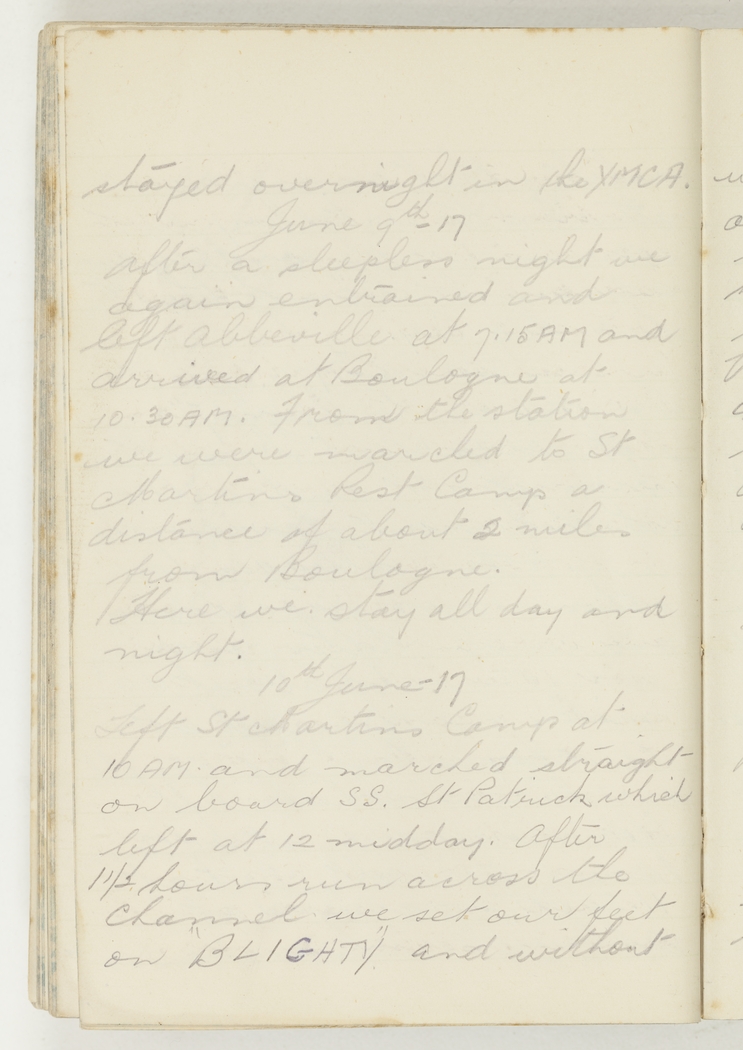 stayed overnight in the YMCA.
June 9th-17
After a sleepless night we
again entrained and
left Abbeville at 7.15AM and
arrived at Boulogne at
10.30AM. From the station
we were marcled to St
Martins Rest Camp a
distance of about 2 miles
from Boulogne.
Here we stay all day and
night.
10th June-17
Left St Martins Camp at
10 AM. and marched straight
on board SS. St Patrick which
left at 12 midday. After
1 1/2 hours run across the
Channel we set our feet
on "BLIGHTY" and without